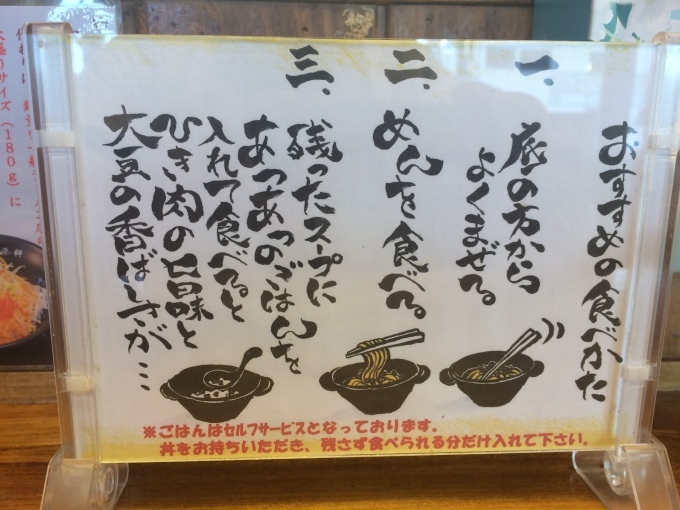 おすすめの食べかた
一、
底の方から
よくまぜる。
二、
めんを食べる。
三、
残ったスープに
あつあつのごはんを
入れて食べると
ひき肉の旨味と
大豆の香ばしさが…
※ごはんはセルフサービスとなっております。
丼をお持ちいただき、残さず食べられる分だけ入れて下さい。
大盛りサイズ（180g）に